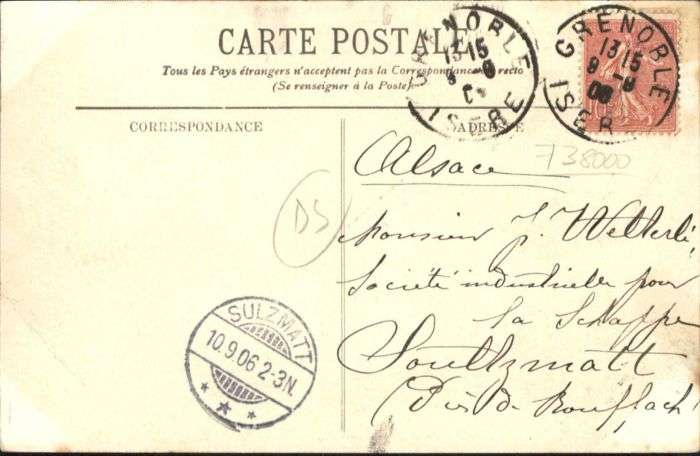 CARTE POSTALE
Tous les Pays étrangers n'acceptent pas la Correspondance au recto
(Se renseigner à la Poste)
CORRESPONDANCE
ADRESSE
GRENOBLE
13 15
9 -9
ISERE
GRENOBLE
13 15
9 -9
06
ISERE
738000
DS
Alsace
Monsieur J. Wetterlé
Société industrielle pour
la Schappe
Soultzmatt
(Près de Rouffach)
SULZMATT
10.9.06 2-3N.